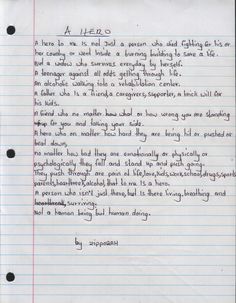 A HERO
A hero to me is not just a person who died fighting for his or
her country or went inside a burning building to save a life.
But a woman who survives everyday by herself.
A teenager against all odds getting through life.
An alcoholic walking into a rehabilitation center.
A father who is a friend, a caregivers, supporter, a brick wall for
his kids.
A friend who no matter how what or how wrong you are standing
up for you and taking your side.
A hero who on matter how hard they are being hit or pushed or
beat down,
no matter how bad they are emotionally or physically or
psychologically they fall and stand up and push going.
They push through are pain of life, love, kids, work, school, drugs, sports
parents, heartbreak, alcohol, that to me is a hero.
A person who isn't just there, but is there living, breathing and
surviving.
Not a human being but human doing.
by